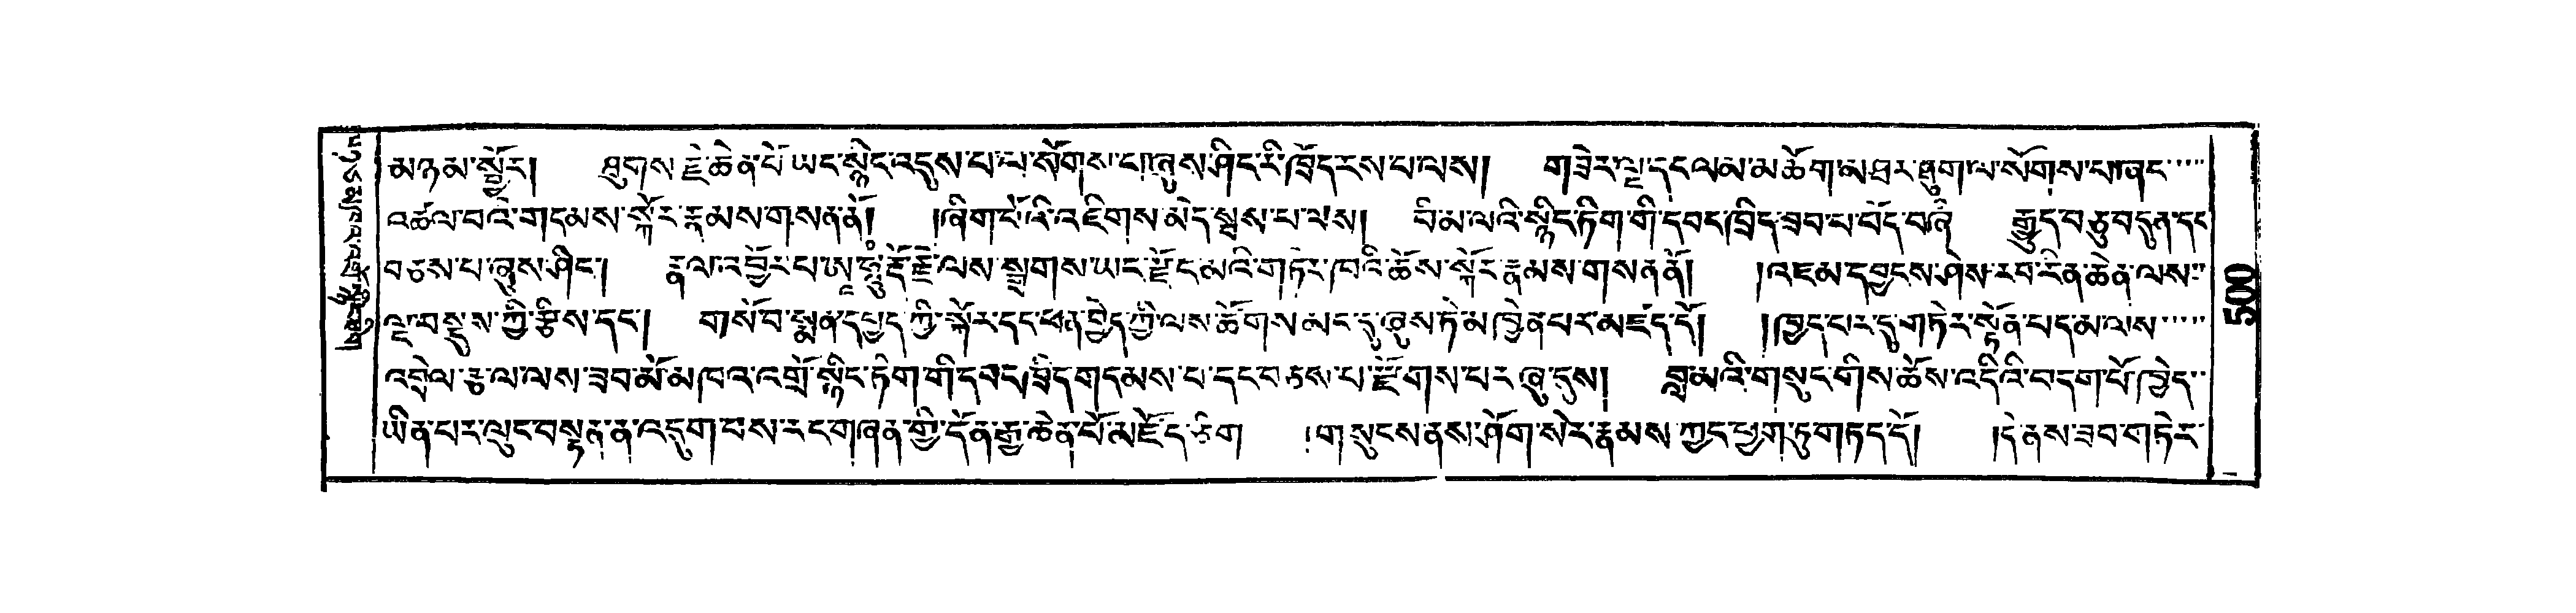 མཉམ་སྦྱོར།  ཐུགས་རྗེ་ཆེན་པོ་ཡང་སྙིང་འདུས་པ་ལ་སོགས་པ་ཞུས་ཤིང་རི་ཁྲོད་རས་པ་ལས།  གཟེར་ལྔ་དང་ལམ་མཆོག་མཐར་ཐུག་ལ་སོགས་པ་ཞང་
འཚལ་བའི་གདམས་སྐོར་རྣམས་གསན་ནོ།  །ཞིག་པོ་ཕི་འཇིགས་མེད་སྦས་པ་ལས།  བི་མ་ལའི་སྙིང་ཏིག་གི་དབང་ཁྲིད་ཟབ་པ་བོད་བཞི  རྒྱུད་བཅུ་བདུན་དང་
བཅས་པ་ཞུས་ཤིང་།  རྣལ་འབྱོར་པ་ཨཱ་ཧཱུྃ་རྡོ་རྗེ་ལས་སྔགས་ཡང་རྫོང་མའི་གཏེར་ཁའི་ཆོས་སྐོར་རྣམས་གསན་ནོ།  །འཇམ་དབྱངས་ཤེས་རབ་རིན་ཆེན་ལས་
ལྔ་བསྡུས་ཀྱི་རྩིས་དང་།  གསོ་བ་སྨན་དཔྱད་ཀྱི་སྐོར་དང་ཕན་བྱེད་ཀྱི་ལས་ཚོགས་མང་དུ་ཞུས་ཏེ་མཁྱེན་པར་མཛད་དོ།  །ཁྱད་པར་དུ་གཏེར་སྟོན་པདམ་ལས་
འབྲེལ་རྩལ་ལས་ཟབ་མོ་མཁའ་འགྲོ་སྙིང་ཏིག་གི་དབང་ཁྲིད་གདམས་པ་དང་བཅས་པ་རྫོགས་པར་ཞུ་དུས།  བླ་མའི་གསུང་གིས་ཆོས་འདིའི་བདག་པོ་ཁྱེད་
ཡིན་པར་ལུང་བསྟན་ན་འདུག་པས་རང་གཞན་གྱི་དོན་རྒྱ་ཆེན་པོ་མཛོད་ཅིག  །གསུངས་ནས་ཤོག་སེར་རྣམས་ཀྱང་ཕྱག་ཏུ་གཏད་དོ།  །དེ་ནས་ཟབ་གཏེར་